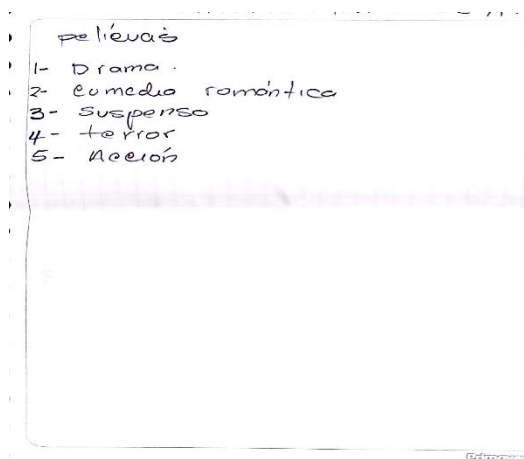 películas
1- Drama.
2- comedia romántica
3- suspenso
4- terror
5- Acción